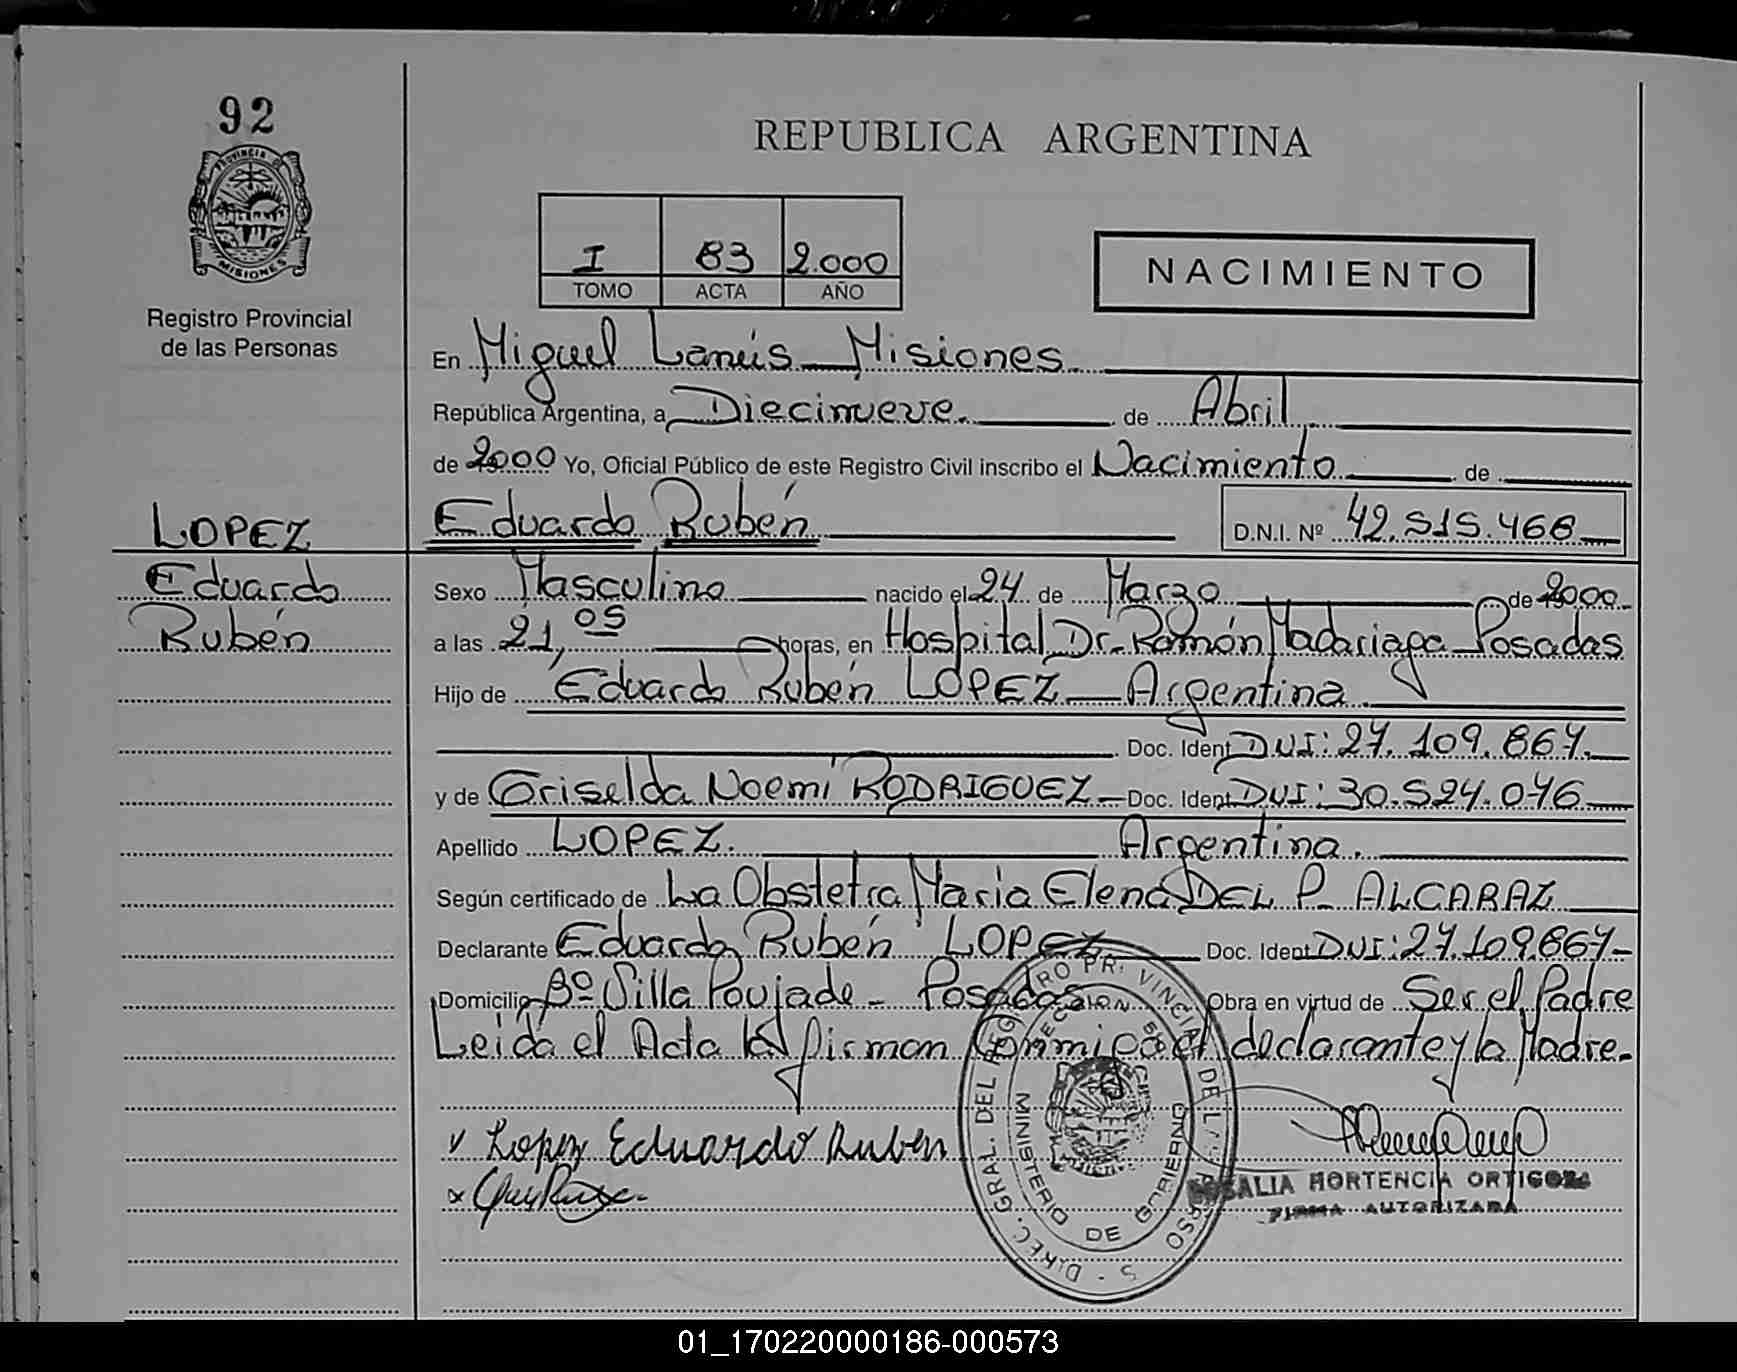 92
PROVINCIA D
MISIONES
Registro Provincial
de las Personas
REPUBLICA ARGENTINA
I 83 2.000
TOMO ACTA AÑO
NACIMIENTO
En Miguel Lanús - Misiones.
República Argentina, a Diecinueve. de Abril.
de 2000 Yo, Oficial Público de este Registro Civil inscribo el Nacimiento de
LOPEZ
Eduardo
Rubén
Eduardo Rubén D.N.I. Nº 42.515.468
Sexo Masculino nacido el 24 de Marzo de 2000
a las 21,05 horas, en Hospital Dr. Ramón Madariaga - Posadas
Hijo de Eduardo Rubén LOPEZ - Argentina.
Doc. Ident DNI: 27.109.867.
y de Griselda Noemí RODRIGUEZ - Doc. Ident DNI: 30.524.076
Apellido LOPEZ. Argentina.
Según certificado de La Obstetra María Elena DEL P. ALCARAZ
Declarante Eduardo Rubén LOPEZ Doc. Ident DNI: 27.109.867-
Domicilio Bº Villa Poujade - Posadas Obra en virtud de Ser el Padre
Leida el Acta la firman Conmigo el declarante y la Madre.
Lopez Eduardo Ruben
DIREC. GRAL. DEL REGISTRO PROVINCIAL DE LAS PERSO
MINISTERIO DE GOBIERNO
ROSALIA HORTENCIA ORTIGOZA
FIRMA AUTORIZADA
01_170220000186-000573